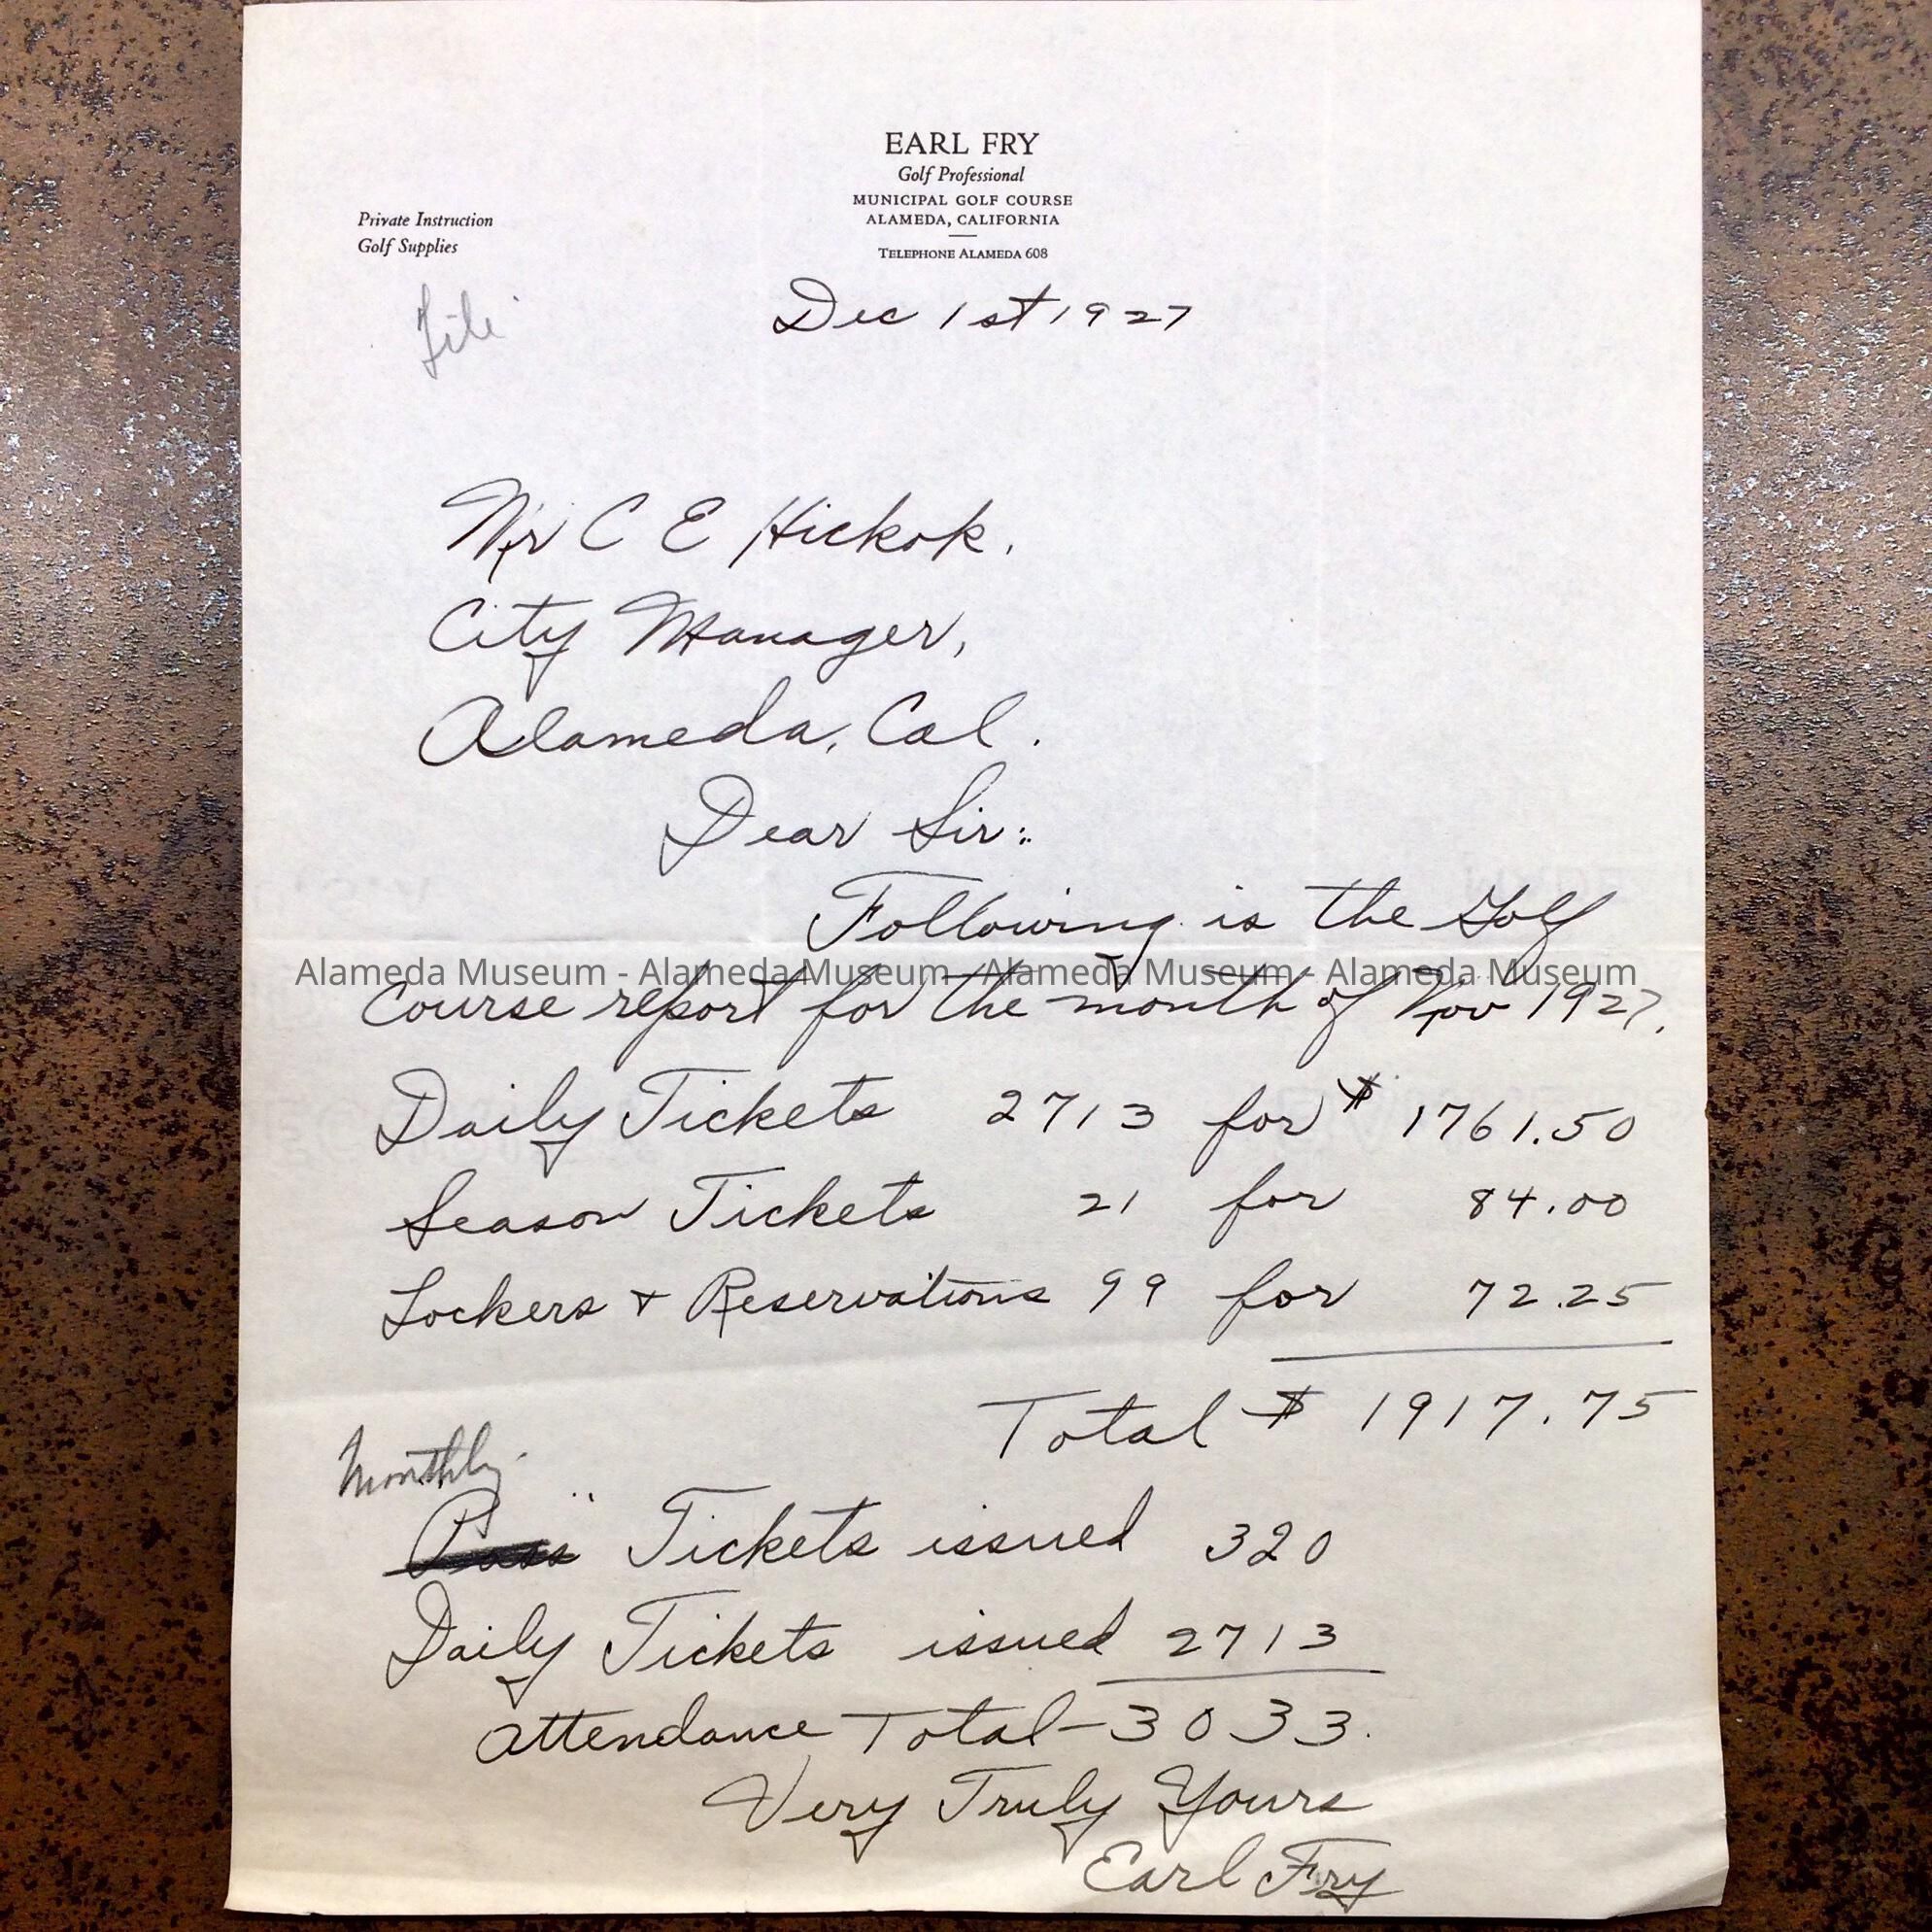 EARL FRY
Golf Professional
MUNICIPAL GOLF COURSE
ALAMEDA, CALIFORNIA
TELEPHONE ALAMEDA 608
Private Instruction
Golf Supplies
File
Dec 1st 1927
Mr C E Hickok.
City Manager,
Alameda, Cal.
Dear Sir:
Following is the Golf
Alameda Museum - Alameda Museum - Alameda Museum - Alameda Museum
course report for the month of Nov 1927.
Daily Tickets 2713 for $ 1761.50
Season Tickets 21 for 84.00
Lockers + Reservations 99 for 72.25
Total $ 1917.75
Monthly
Pass Tickets issued 320
Daily Tickets issued 2713
Attendance Total - 3033.
Very Truly Yours
Earl Fry